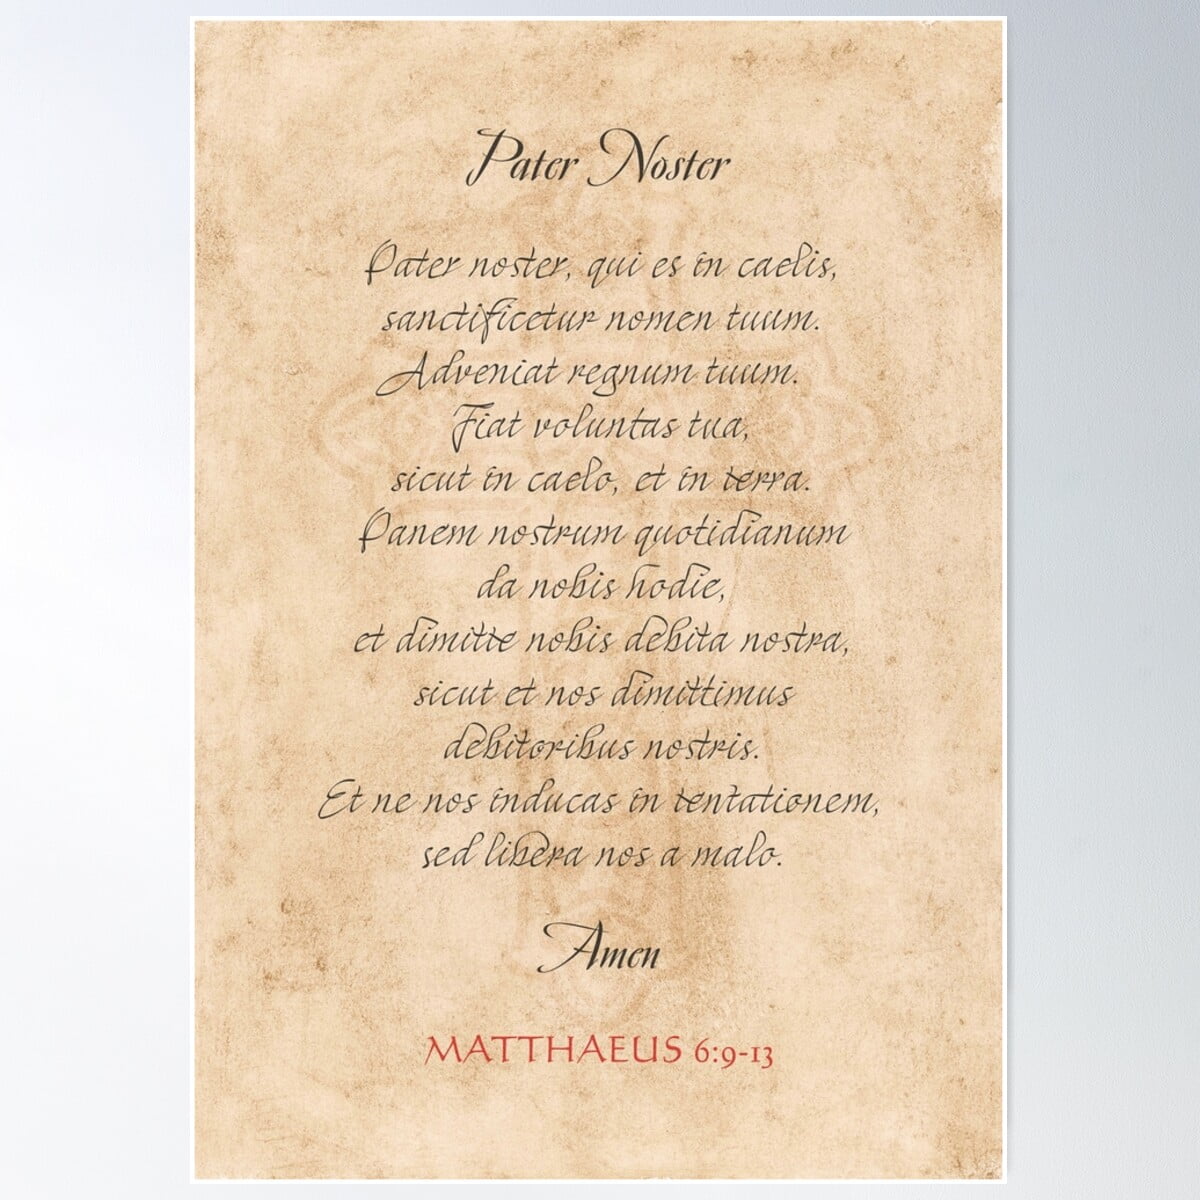 Pater Noster
Pater noster, qui es in caelis,
sanctificetur nomen tuum.
Adveniat regnum tuum.
Fiat voluntas tua,
sicut in caelo, et in terra.
Panem nostrum quotidianum
da nobis hodie,
et dimitte nobis debita nostra,
sicut et nos dimittimus
debitoribus nostris.
Et ne nos inducas in tentationem,
sed libera nos a malo.
Amen
MATTHAEUS 6:9-13